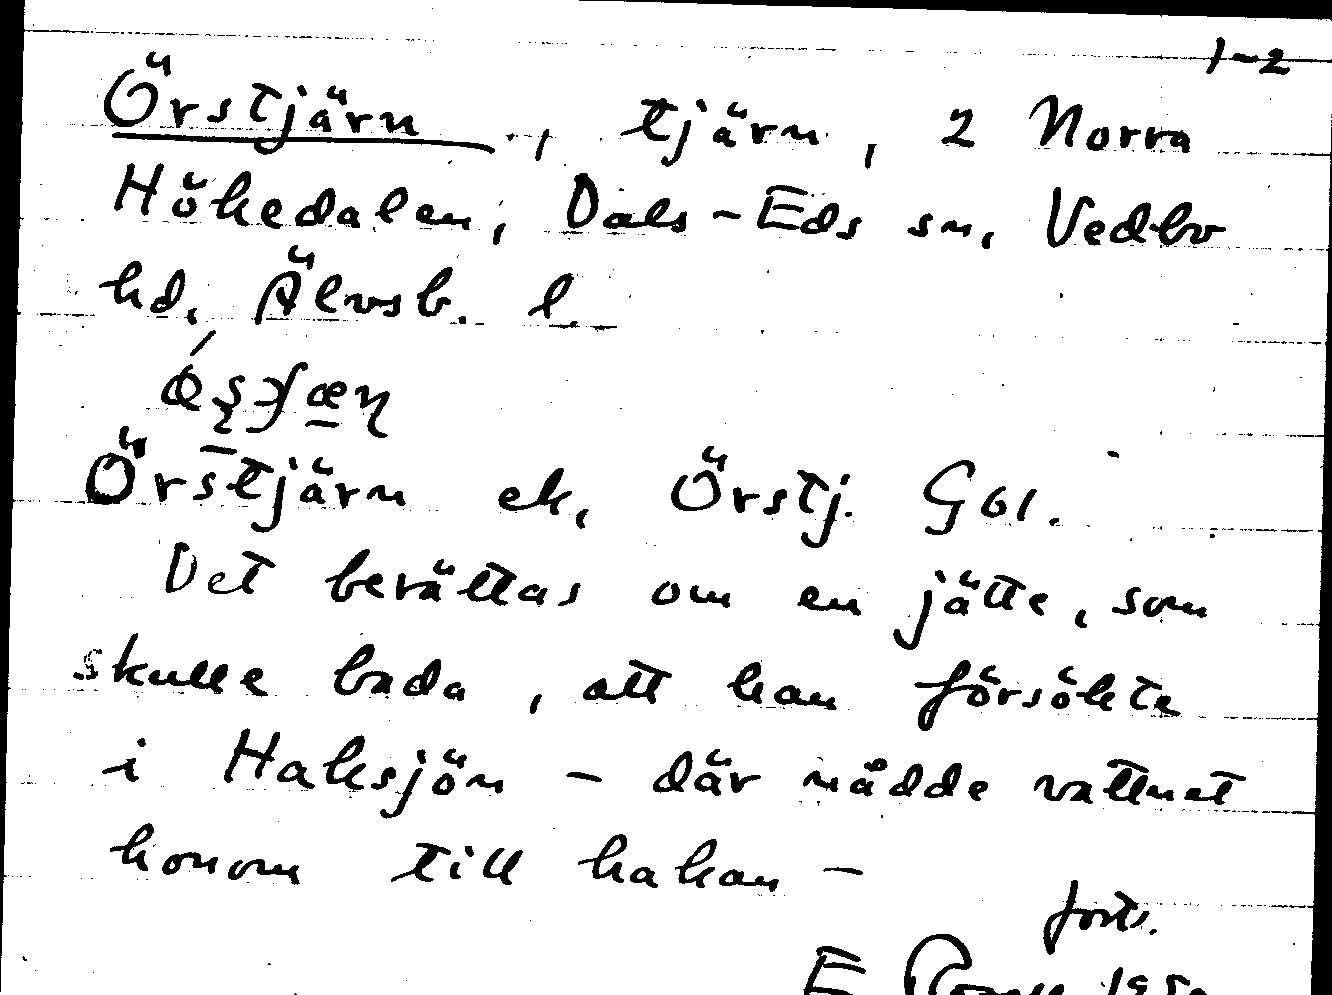 1-2
Örstjärn, tjärn, 2 Norra
Hökedalen, Dals-Eds sn, Vedbo
hd, Älvsb. l.
Örstjärn ek, Örstj. G61.
Det berättas om en jätte, som
skulle bada, att han försökte
i Haksjön – där nådde vattnet
honom till hakan –
forts.
E